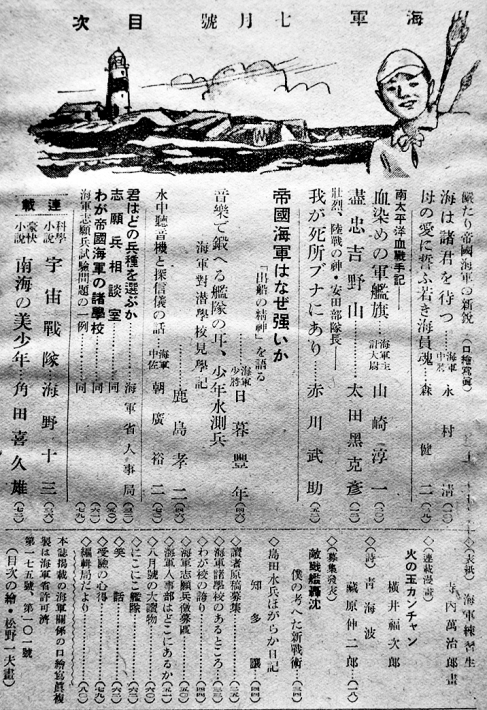 海軍 七月號 目次
嚴たり帝國海軍の新鋭(口繪寫眞)
海は諸君を待つ……海軍中將 永村清(二)
母の愛に誓ふ若き海員魂…森健二(一九)
南太平洋血戰手記――
血染めの軍艦旗 海軍主計大尉 山崎淳一
盡忠吉野山……太田黑克彥
壯烈、陸戰の神・安田部隊長――
我が死所ブナにあり…赤川武助
帝國海軍はなぜ强いか
「出船の精神」を語る
海軍少將 日暮豐年
音樂で鍛へる艦隊の耳、少年水測兵
海軍對潛學校見學記
鹿島孝二
水中聽音機と探信儀の話 海軍中佐 朝廣裕二
君はどの兵種を選ぶか……海軍省人事局
志願兵相談室……同
わが帝國海軍の諸學校……同
海軍志願兵試驗問題の一例……同
連載
科學小說 宇宙戰隊…海野十三
豪快小說 南海の美少年…角田喜久雄
◇(表紙)海軍練習生
寺內萬治郎畫
◇(連載漫畫)
火の玉カンチャン
橫井福次郎
◇(詩)靑海波
藏原伸二郎
◇(募集發表)
敵戰艦轟沈
僕の考へた新戰術
◇島田水兵ほがらか日記
知多讓
◇讀者原稿募集
◇海軍諸學校のあるところ
◇わが校の誇り
◇海軍志願兵徵募區
◇海軍人事部はどこにあるか
◇八月號の大讀物
◇にこにこ艦隊
◇笑話
◇受驗の心得
◇編輯局だより
本誌揭載の海軍關係の口繪寫眞複
製は海軍省許可濟
第一七五號、第一〇一號
(目次の繪・松野一夫畫)